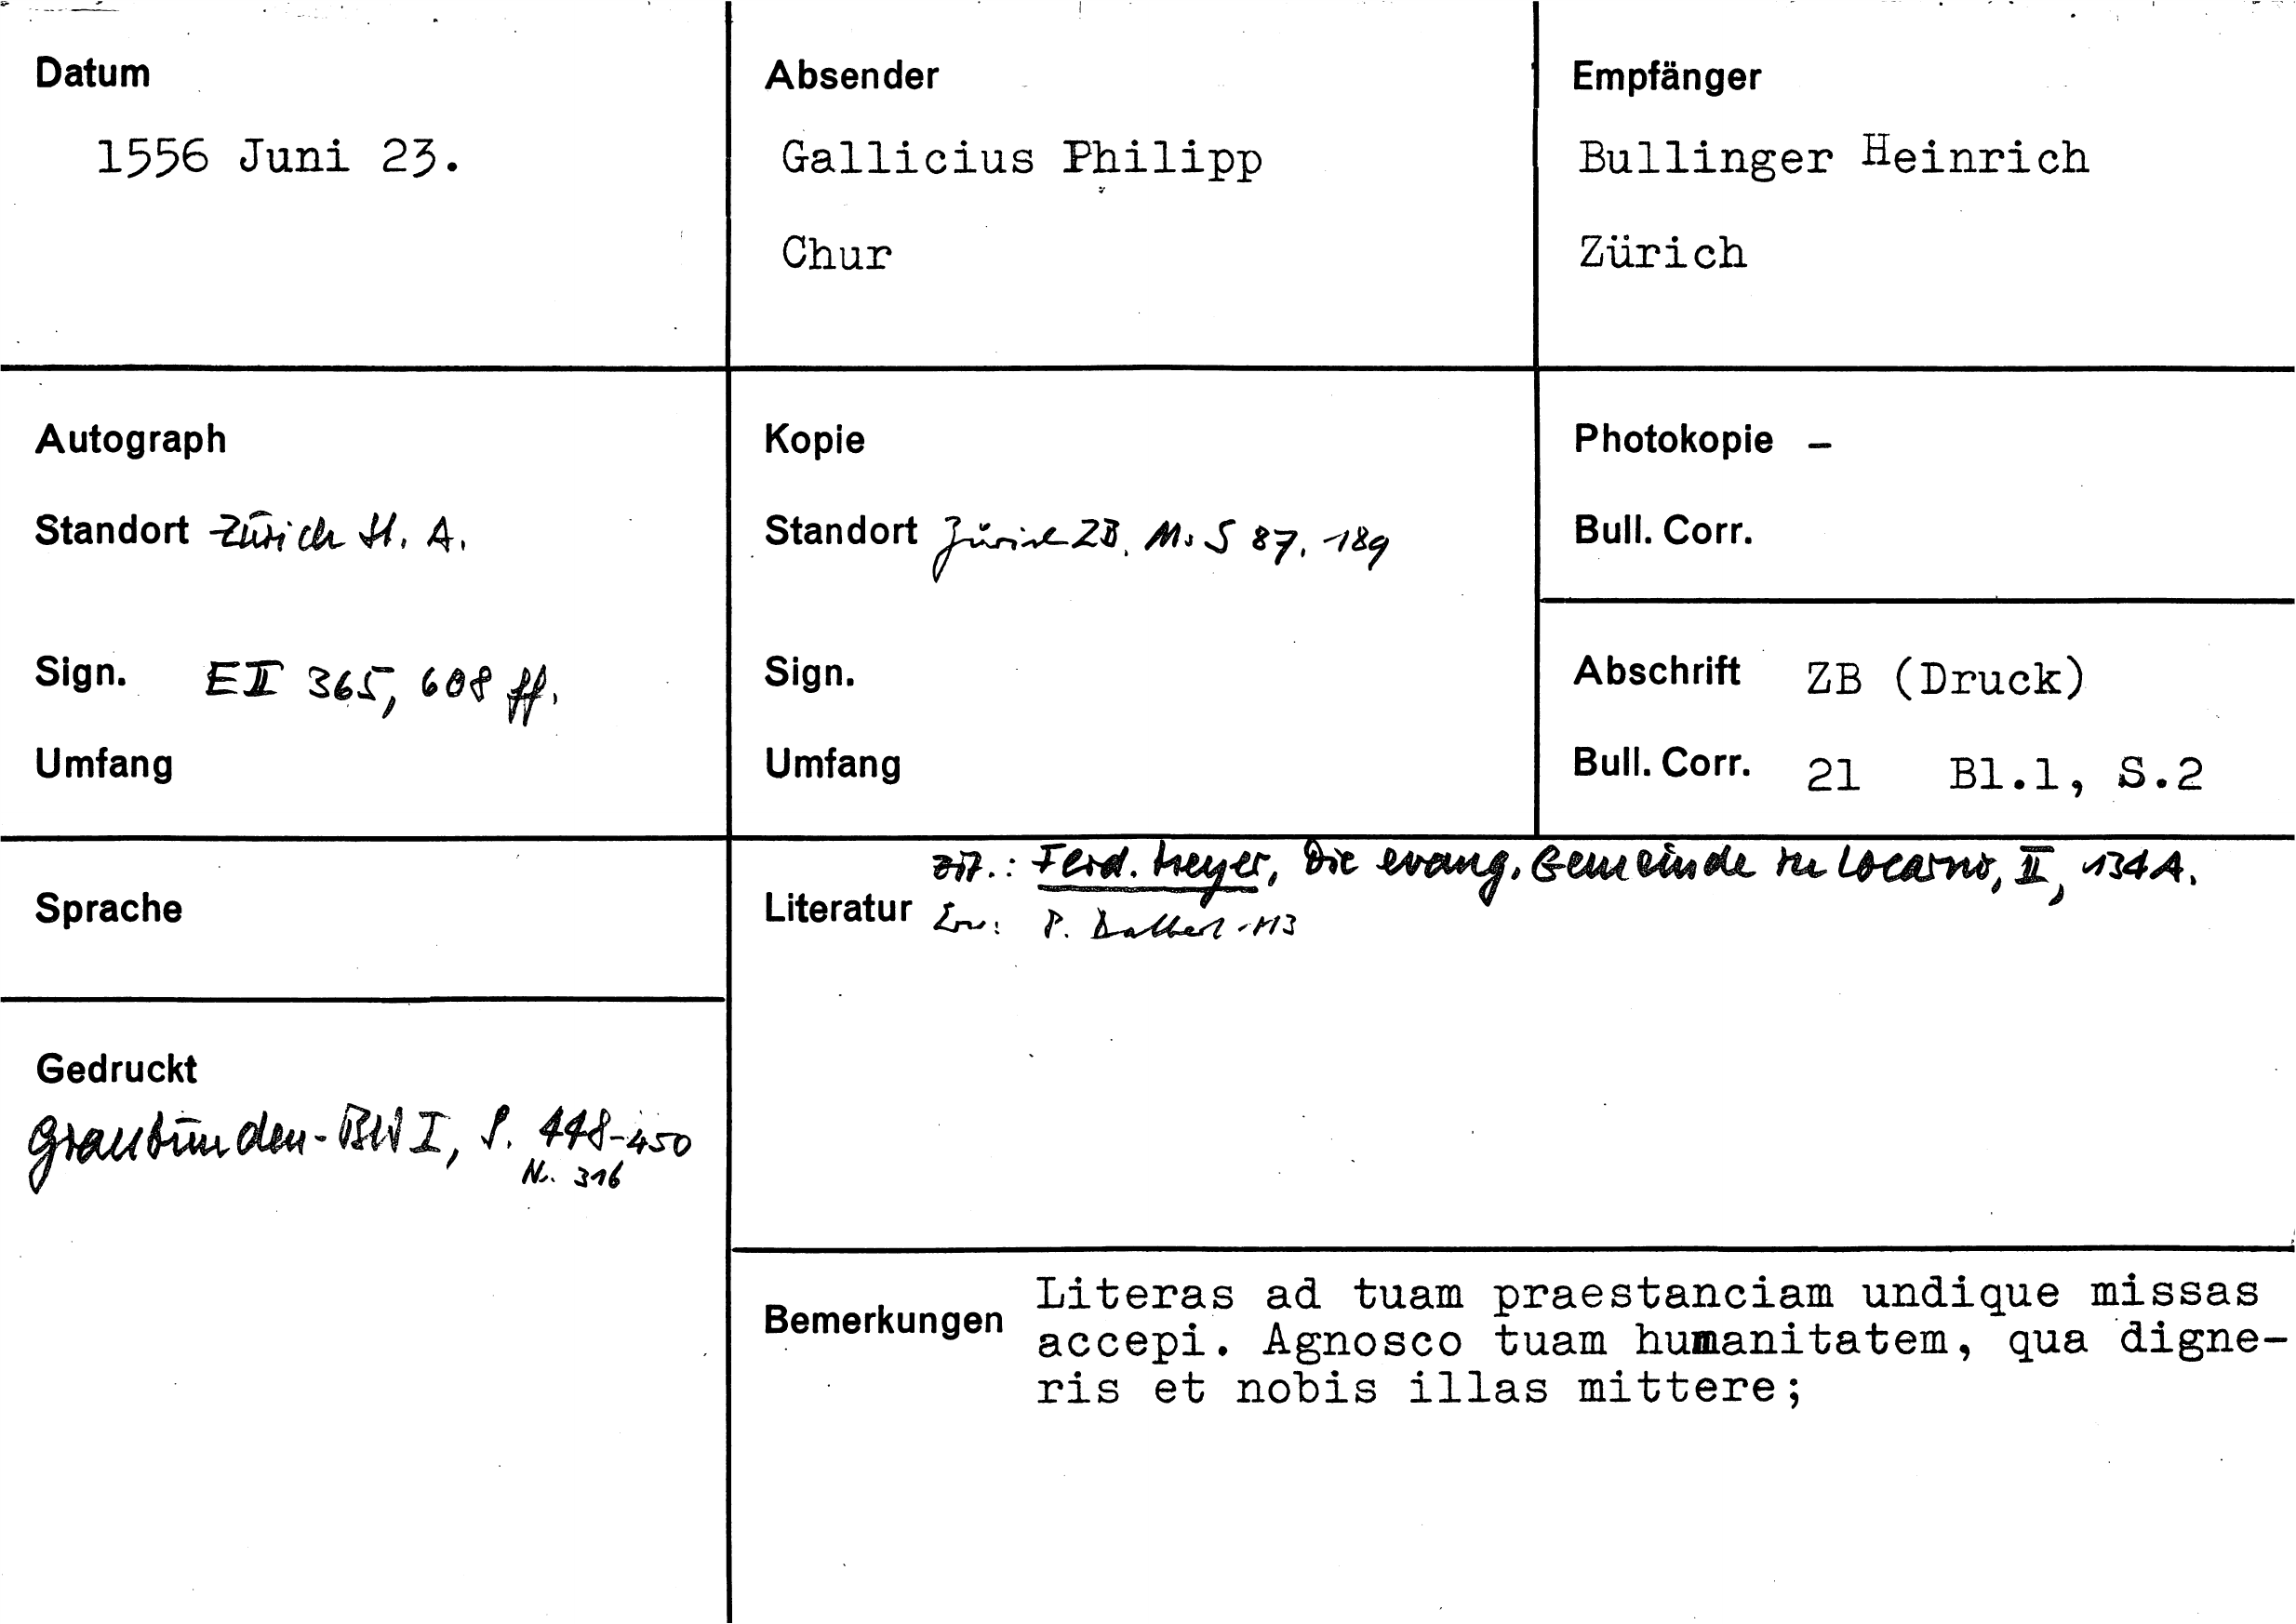 Datum
1556 Juni 23.
Absender
Gallicius Philipp
Chur
Empfänger
Bullinger Heinrich
Zürich
Autograph
Standort Zürich St. A.
Sign. E II 365, 608 ff.
Umfang
Kopie
Standort Zürich ZB, Ms S 87, 189
Sign.
Umfang
Photokopie –
Bull. Corr.
Abschrift ZB (Druck)
Bull. Corr. 21 Bl.1, S.2
Sprache
Gedruckt
Graubünden-BW I, S. 448-450
Nr. 316
zit.: Ferd. Meyer, Die evang. Gemeinde in Locarno, II, 134 A.
Literatur P. Dalbert 113
Bemerkungen
Literas ad tuam praestanciam undique missas
accepi. Agnosco tuam humanitatem, qua digne-
ris et nobis illas mittere;